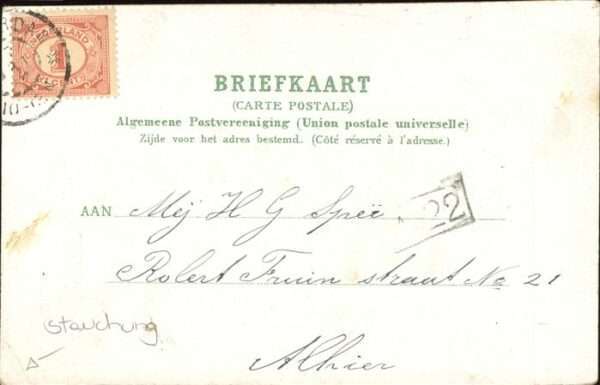 NEDERLAND
1
CENT
BRIEFKAART
(CARTE POSTALE)
Algemeene Postvereeniging (Union postale universelle)
Zijde voor het adres bestemd. (Côté réservé à l'adresse.)
AAN Mej H G Speü
22
Robert Fruin straat No 21
Alhier
Stauchung